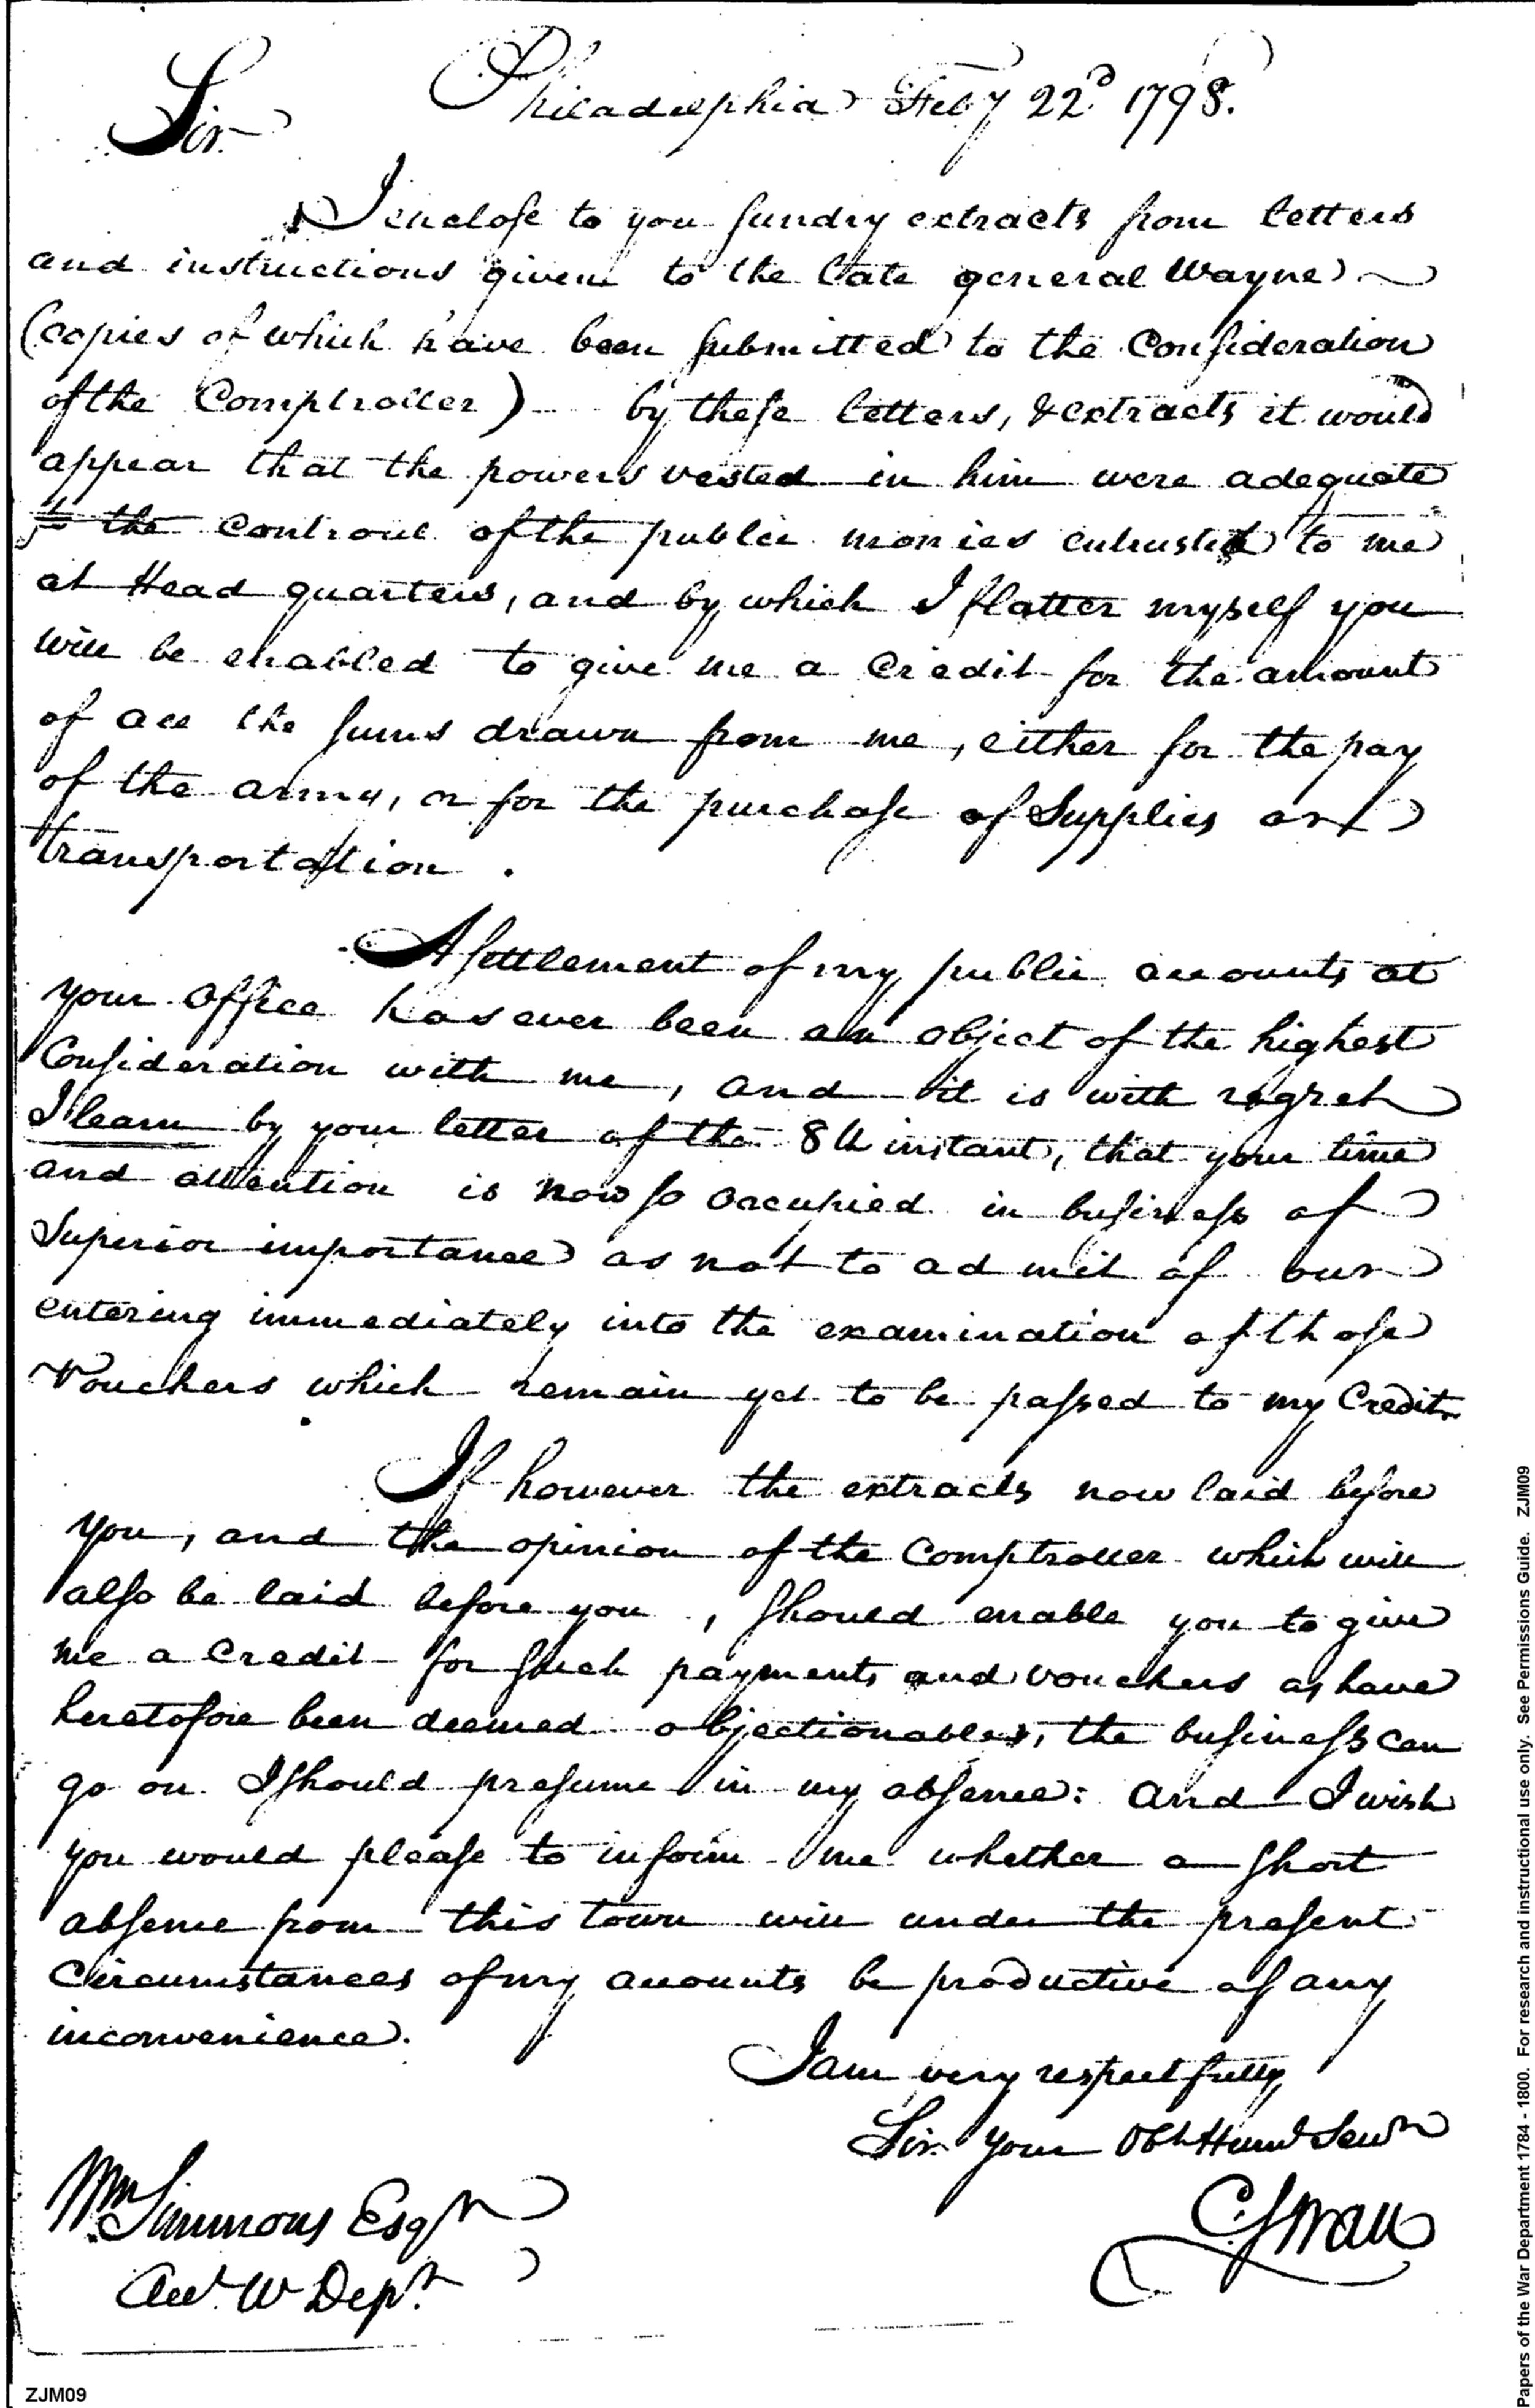 Philadelphia Feby 22d. 1798.
Sir.
I enclose to you sundry extracts from letters
and instructions given to the late general Wayne
(copies of which have been submitted to the Consideration
of the Comptroller) - by these letters, & extracts it would
appear that the powers vested in him were adequate
to the controul of the public monies entrusted to me
at Head quarters, and by which I flatter myself you
will be enabled to give me a Credit for the amount
of all the sums drawn from me, either for the pay
of the army, or for the purchase of Supplies or
transportation.
A settlement of my public accounts at
your office has ever been an object of the highest
Consideration with me, and it is with regret
I learn by your letter of the 8th instant, that your time
and attention is now so occupied in business of
Superior importance as not to admit of our
entering immediately into the examination of those
Vouchers which remain yet to be passed to my Credit.
If however the extracts now laid before
you, and the opinion of the Comptroller which will
also be laid before you, should enable you to give
me a Credit for such payments and vouchers as have
heretofore been deemed objectionable, the business can
go on I should presume in my absence: and I wish
you would please to inform me whether a short
absence from this town will under the present
Circumstances of my accounts be productive of any
inconvenience.
I am very respectfully
Sir your Obt Huml Servt
C. Swan
Wm Simmons Esqr
Acct. W Dept.
ZJM09
Papers of the War Department 1784 - 1800. For research and instructional use only. See Permissions Guide. ZJM09